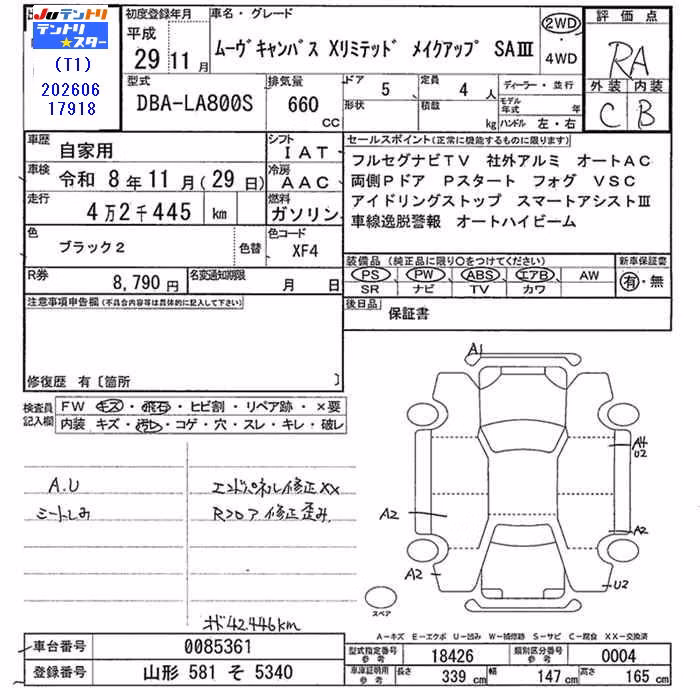 Juテントリ
テントリ
★スター
(T1)
202606
17918
初度登録年月
平成
29年11月
車名・グレード
ムーヴキャンバス Xリミテッド メイクアップ SAⅢ
2WD
・
4WD
評価点
RA
外装 内装
C B
型式
DBA-LA800S
排気量
660
CC
ドア 5
形状
定員 4 人
積載 kg
ディーラー・並行
モデル年式 年
ハンドル 左・右
車歴 自家用
シフト IAT
車検 令和 8年11月(29日)
冷房 AAC
走行 4万2千445 km
燃料 ガソリン
色 ブラック2
色替
色コード XF4
R券 8,790円
名変通知期限 月 日
セールスポイント(正常に機能するものに限ります)
フルセグナビTV 社外アルミ オートAC
両側Pドア Pスタート フォグ VSC
アイドリングストップ スマートアシストⅢ
車線逸脱警報 オートハイビーム
装備品(純正品に限り○をつけてください)
PS PW ABS エアB AW
SR ナビ TV カワ
新車保証書
有・無
後日品
保証書
注意事項申告欄(不具合内容等は具体的に記入して下さい)
修復歴 有〔箇所 〕
検査員記入欄
FW キズ・飛石・ヒビ割・リペア跡・×要
内装 キズ・汚レ・コゲ・穴・スレ・キレ・破レ
A.U
シートしみ
エンドパネル修正XX
Rフロア修正歪み
42,446km
A1
A4
U2
A2
A2
A2
U2
スペア
A-キズ E-エクボ U-凹み W-補修跡 S-サビ C-腐食 XX-交換済
車台番号 0085361
登録番号 山形 581 そ 5340
型式指定番号参考 18426
類別区分番号参考 0004
車庫証明用参考 長さ 339 cm 幅 147 cm 高さ 165 cm